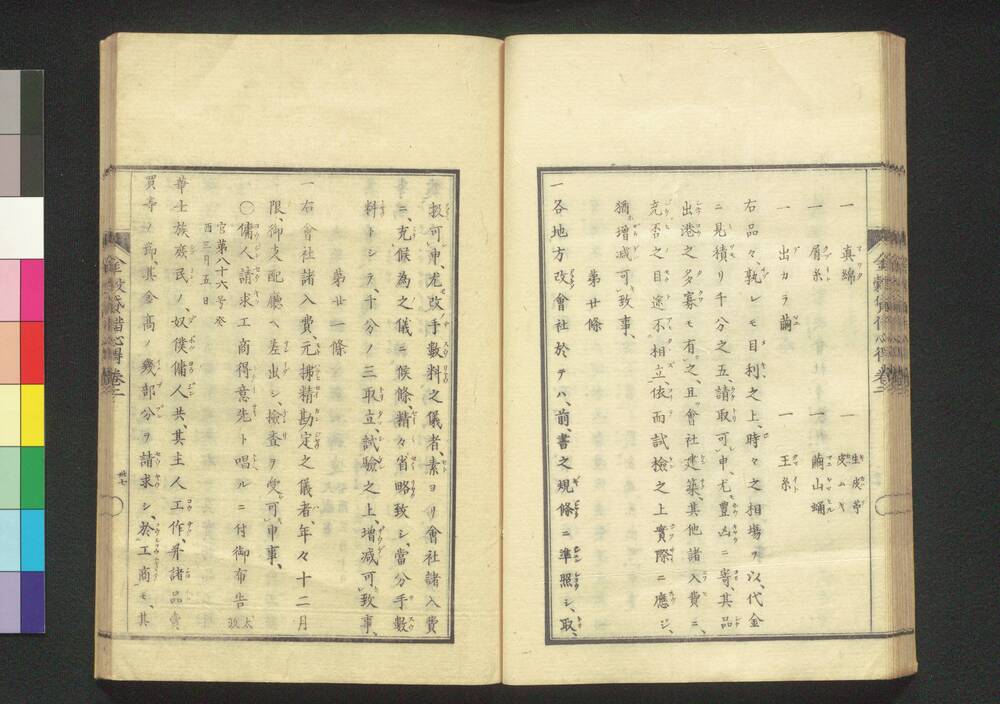 一　真綿　　　　一　生皮苧
　　　　　　　　　　皮ムキ
一　屑糸　　　　一　繭山蛹
一　出カラ繭　　一　玉糸
右品々、孰レモ目利之上、時々之相場ヲ以、代金
ニ見積リ千分之五、請取可申、尤豊凶ニ寄、其品
出港之多寡モ有之、且會社建築、其他諸入費ニ、
充否之目途不相立、依而試檢之上實際ニ應シ、
猶増減可致事、
第廿條
一各地方改會社於テハ、前書之規條ニ準照シ、取
扱可申、尤改手數料之儀者、素ヨリ會社諸入費
ニ、充候為之儀ニ候條精々省略致シ、當分手數
料トシテ、十分ノ三取立、試驗之上、増減可致事、
第廿一條
一右會社諸入費、元拂精勘定之儀者、年々十二月
限、御支配廳ヘ差出シ、檢査ヲ受可申事、
〇傭人請求工商得意先ト唱ルニ付御布告
太政
官第八十六号
酉三月五日
華士族庶民ノ、奴僕傭人共、其主人工作、并諸品賣
買等ノ節、其金高ノ幾部分ヲ請求シ、於工商モ、其
金穀貸借心得 卷二
卅七